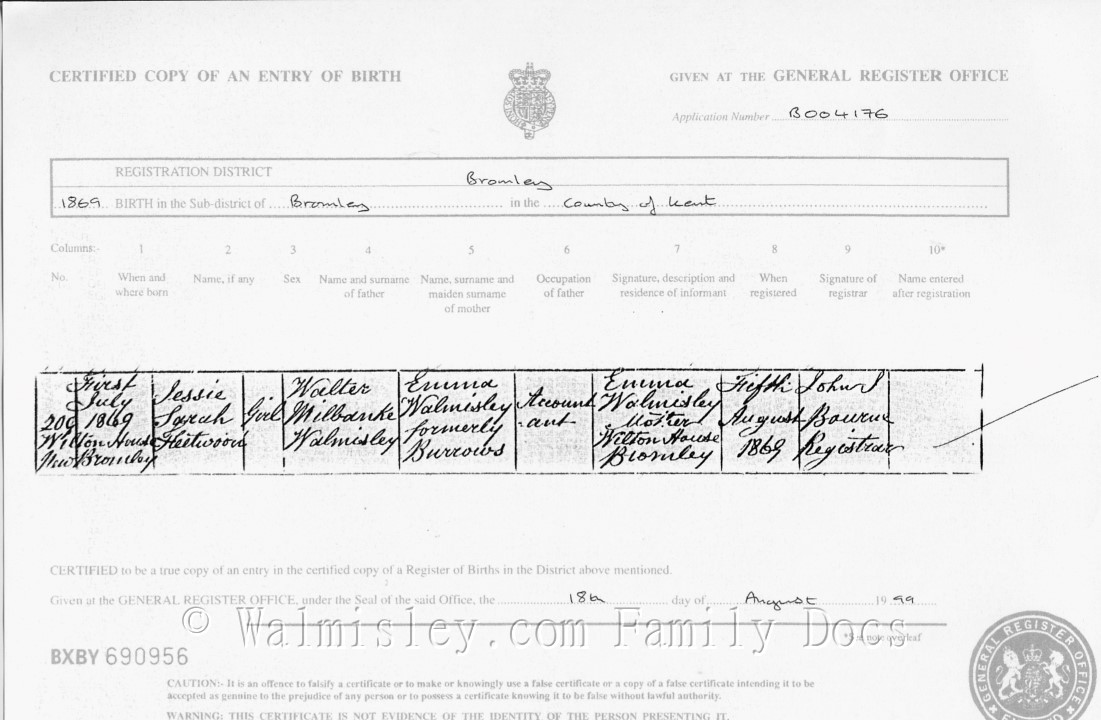 CERTIFIED COPY OF AN ENTRY OF BIRTH
GIVEN AT THE GENERAL REGISTER OFFICE
Application Number B004176
REGISTRATION DISTRICT Bromley
1869 BIRTH in the Sub-district of Bromley in the County of Kent
Columns:- 1 2 3 4 5 6 7 8 9 10*
No. When and where born Name, if any Sex Name and surname of father Name, surname and maiden surname of mother Occupation of father Signature, description and residence of informant When registered Signature of registrar Name entered after registration
206 First July 1869 Wilton House New Bromley
Jessie Sarah Fleetwood
Girl
Walter Milbanke Walmisley
Emma Walmisley formerly Burrows
Account-ant
Emma Walmisley Mother Wilton House Bromley
Fifth August 1869
John J Bourne Registrar
CERTIFIED to be a true copy of an entry in the certified copy of a Register of Births in the District above mentioned.
Given at the GENERAL REGISTER OFFICE, under the Seal of the said Office, the 18th day of August 1999
© Walmisley.com Family Docs
*See note overleaf
BXBY 690956
CAUTION:- It is an offence to falsify a certificate or to make or knowingly use a false certificate or a copy of a false certificate intending it to be
accepted as genuine to the prejudice of any person or to possess a certificate knowing it to be false without lawful authority.
WARNING: THIS CERTIFICATE IS NOT EVIDENCE OF THE IDENTITY OF THE PERSON PRESENTING IT.
GENERAL REGISTER OFFICE